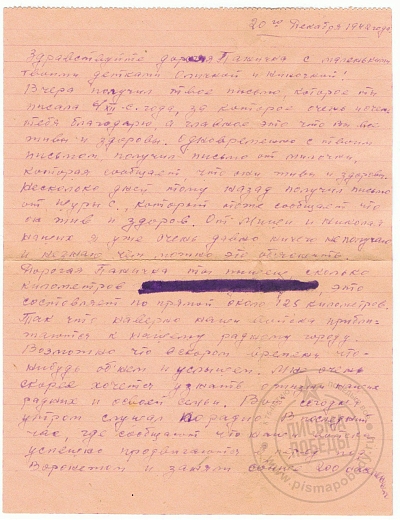 20го Декабря 1942 года
Здравствуйте дорогая Пашичка с маленькими
твоими детками Оличкой и Ниночкой!
Вчера получил твое письмо, которое ты
писала XII-с. года, за которое очень и очень
тебя благодарю, а главное это что вы все
живы и здоровы. Одновременно с твоим
письмом получил письмо от
которая сообщает, что они живы и здоровы.
Несколько дней тому назад получил письмо
от Шуры С. который тоже сообщает что
он жив и здоров. От Миши и Николая
наших я уже очень давно ничего не получаю
и незнаю чем можно это объяснить.
Дорогая Пашичка ты пишешь, сколько
километров это
составляет по прямой около 125 километров.
Так что наверно наши прибли-
жаются к нашему родному городу.
Возможно что вскором времени что-
нибудь об нем и услышем. Мне очень
скорее хочется узнать о наших
родных и о всей семьи. Вот сегодня
утром слушал по радио. В последний
час, где сообщают что наши
успешно продвигаются
Воронежем и заняли более 200
ПИСЬМА ПОБЕДЫ
www.pismapobedy.ru